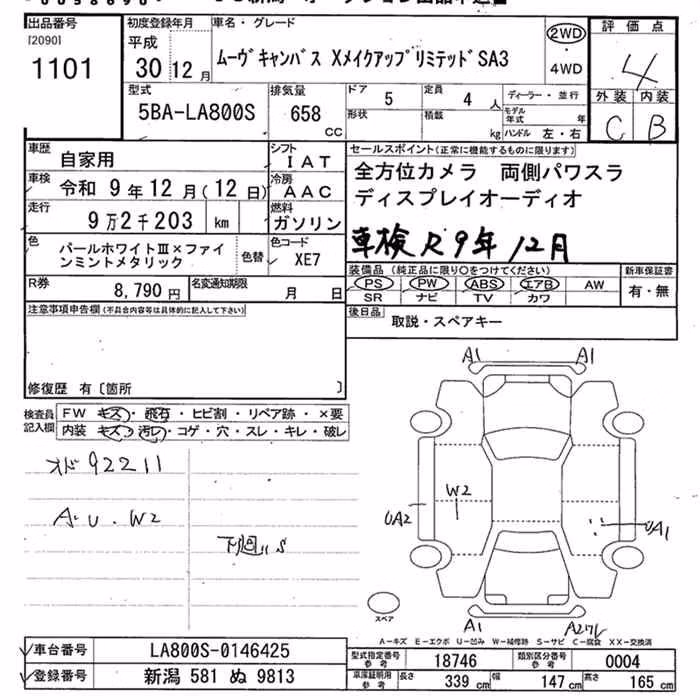 出品番号
[2090]
1101
初度登録年月
平成
30 12 月
車名・グレード
ムーヴキャンバス XメイクアップリミテッドSA3
2WD
・
4WD
評価点
4
外装 内装
C B
型式
5BA-LA800S
排気量
658
CC
ドア
5
定員
4 人
形状
積載
kg
ディーラー・並行
モデル年式 年
ハンドル 左・右
車歴
自家用
シフト
IAT
車検
令和 9年12月(12日)
冷房
AAC
走行
9万2千203 km
燃料
ガソリン
色
パールホワイトⅢ×ファインミントメタリック
色替
色コード
XE7
R券
8,790 円
名変通知期限
月 日
セールスポイント(正常に機能するものに限ります)
全方位カメラ 両側パワスラ
ディスプレイオーディオ
車検R9年12月
装備品 (純正品に限り○をつけてください)
新車保証書
PS PW ABS エアB AW
SR ナビ TV カワ
有・無
後日品
取説・スペアキー
注意事項申告欄(不具合内容等は具体的に記入して下さい)
修復歴 有〔箇所 〕
検査員記入欄
FW キズ・飛石・ヒビ割・リペア跡・×要
内装 キズ・汚れ・コゲ・穴・スレ・キレ・破レ
オド92211
A・U・W2
下廻りS
A1 A1
W2
UA2
UA1
スペア
A1
A-キズ E-エクボ U-凹み W-補修跡 S-サビ C-腐食 XX-交換済
車台番号
LA800S-0146425
登録番号
新潟 581 ぬ 9813
型式指定番号
参考
18746
類別区分番号
参考
0004
車庫証明用
参考
長さ
339 cm
幅
147 cm
高さ
165 cm